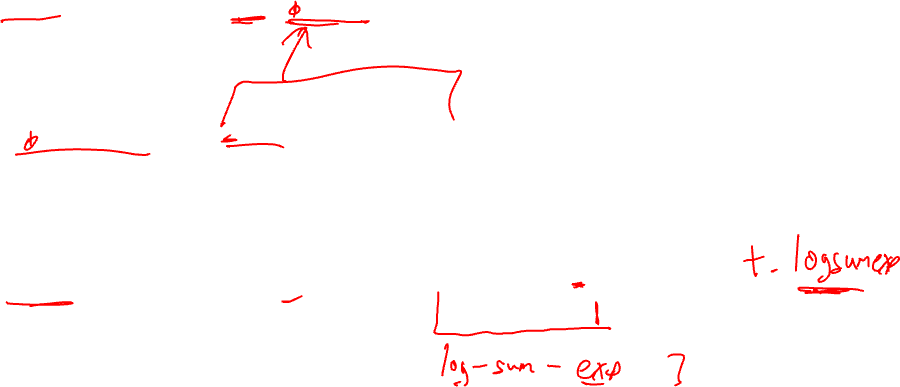 ϕ
ϕ
t. logsumexp
log-sum-exp ]